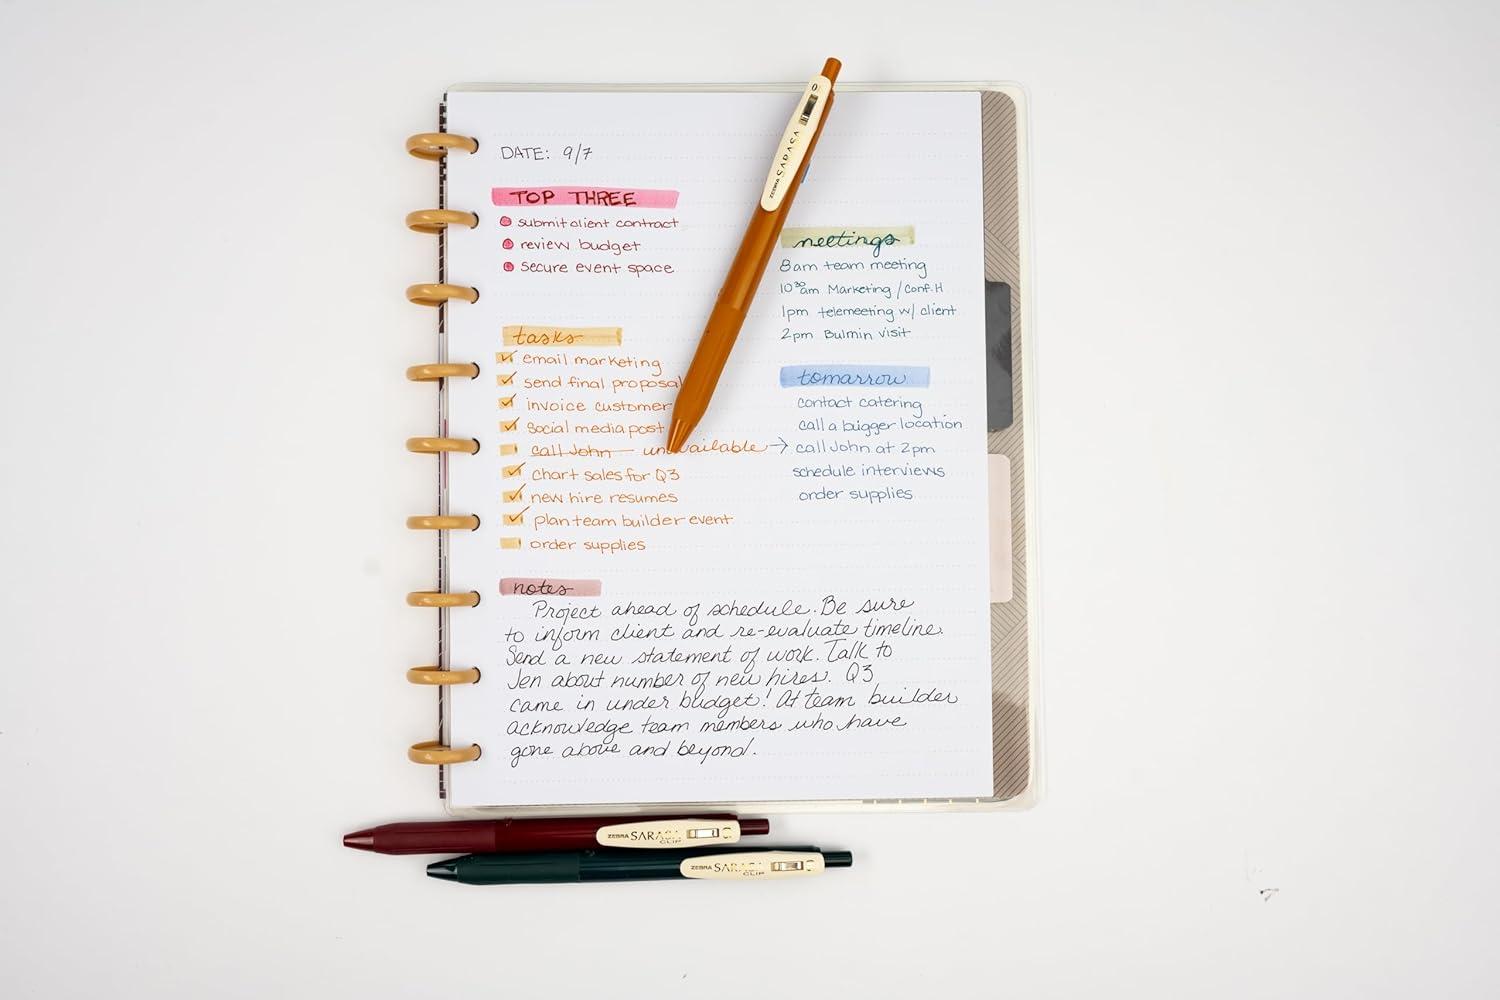 DATE: 9/7
TOP THREE
submit client contract
review budget
secure event space
meetings
8am team meeting
10³⁰am Marketing / Conf. H
1pm telemeeting w/ client
2pm Bulmin visit
tasks
email marketing
send final proposal
invoice customer
Social media post
call John — unavailable →
chart sales for Q3
new hire resumes
plan team builder event
order supplies
tomorrow
contact catering
call a bigger location
call John at 2pm
schedule interviews
order supplies
notes
Project ahead of schedule. Be sure
to inform client and re-evaluate timeline.
Send a new statement of work. Talk to
Jen about number of new hires. Q3
came in under budget! At team builder
acknowledge team members who have
gone above and beyond.
ZEBRA SARASA
ZEBRA SARASA CLIP
ZEBRA SARASA CLIP